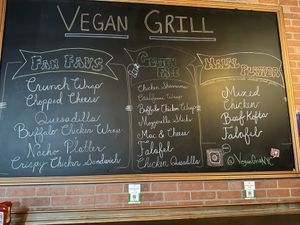 VEGAN GRILL
FAN FAVS
Crunch Wrap
Chopped Cheese
Quesadilla
Buffalo Chicken Wrap
Nacho Platter
Crispy Chicken Sandwich
GLUTEN FREE
Chicken Shawarma
California Wrap
Buffalo Chicken Wrap
Mozzarella Sticks
Mac & Cheese
Falafel
Chicken Quesadilla
HALAL PLATTER
Mixed
Chicken
Beef Kofta
Falafel